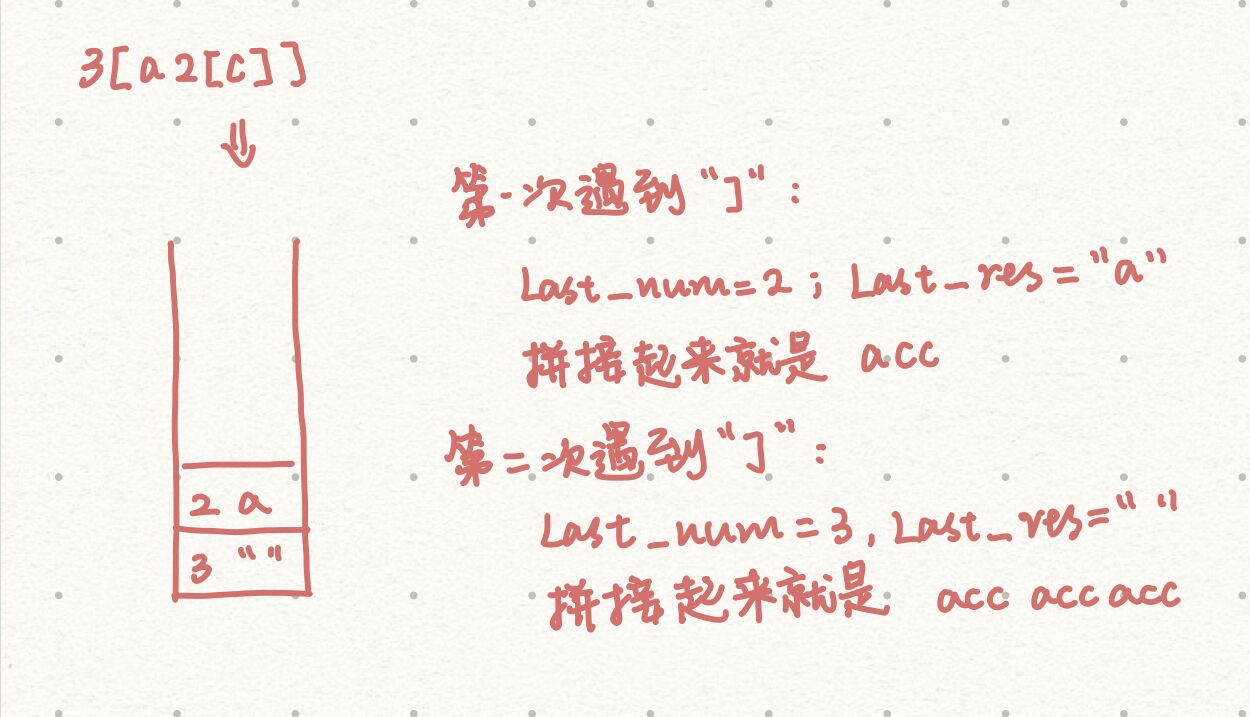 3[a2[c]]
第一次遇到“]”:
Last_num=2; Last_res="a"
拼接起来就是 acc
第二次遇到“]”:
Last_num=3, Last_res=""
拼接起来就是 acc acc acc
2 a
3 ""